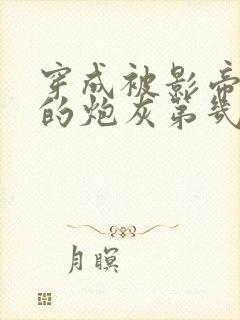 穿成被影帝
的炮灰第几
月瞑